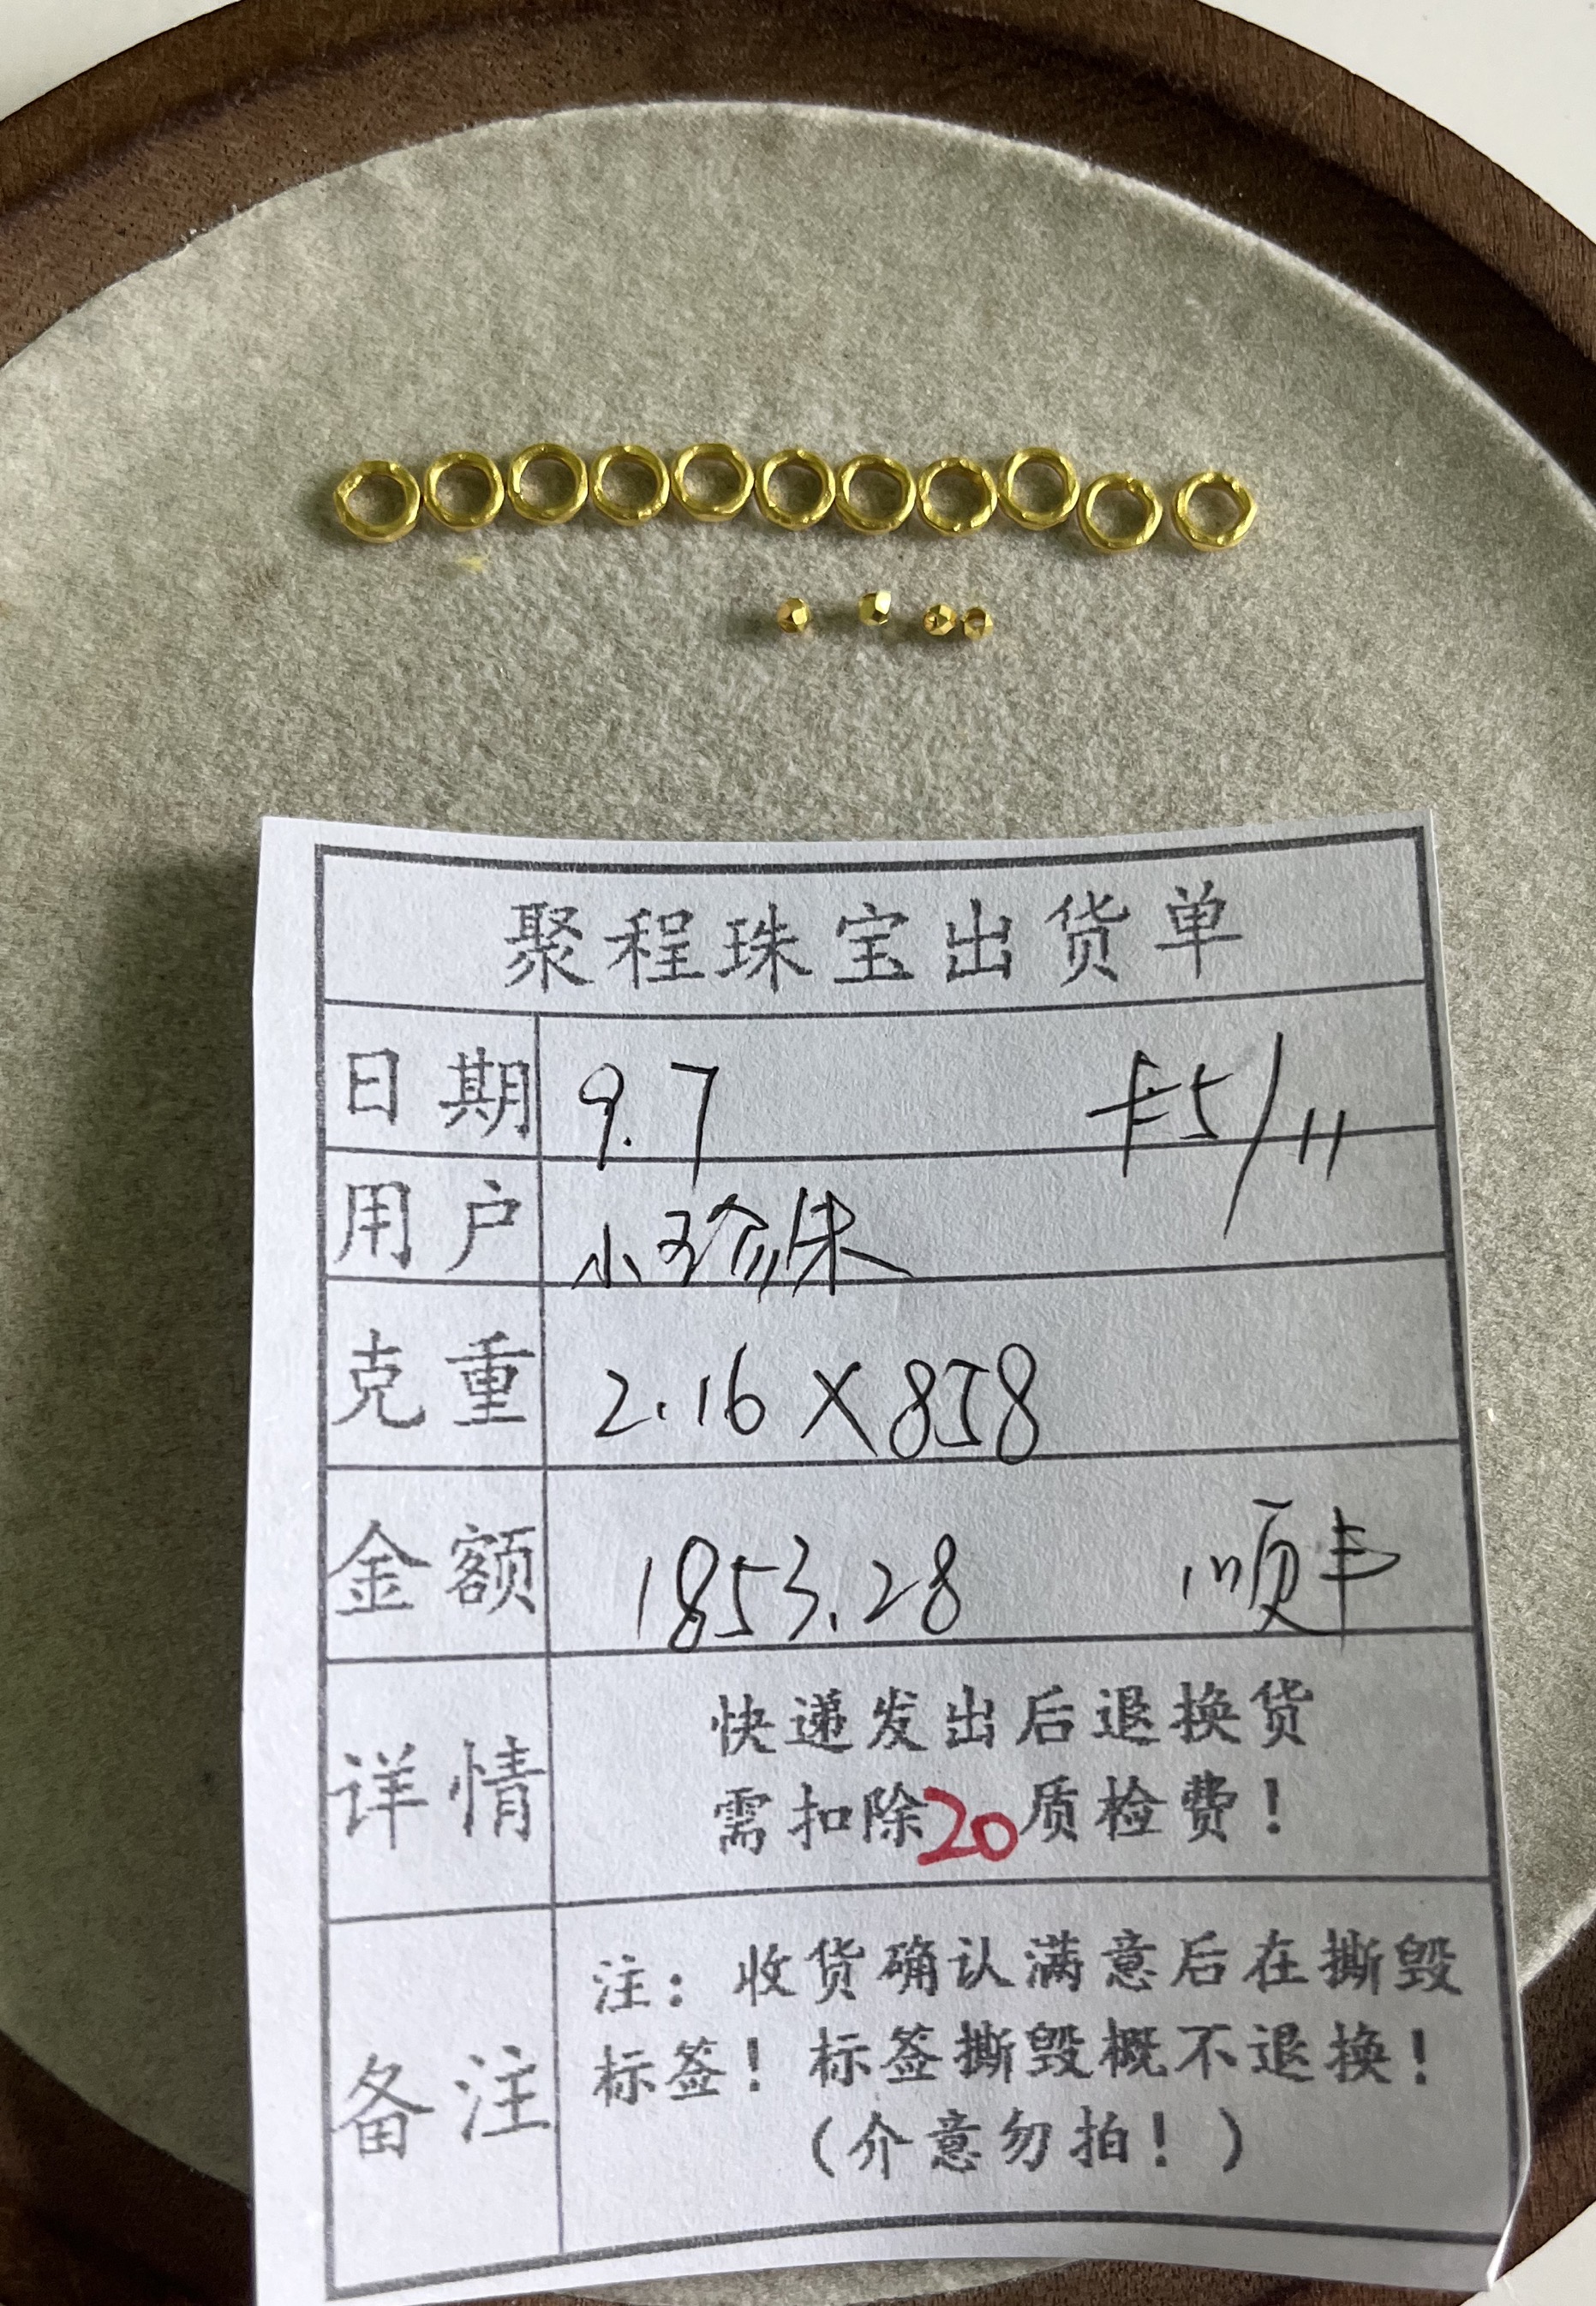 聚程珠宝出货单
日期 9.7 卡5/11
用户 小珍珠
克重 2.16×858
金额 1853.28 顺丰
详情 快递发出后退换货
需扣除20质检费！
备注 注：收货确认满意后在撕毁
标签！标签撕毁概不退换！
（介意勿拍！）